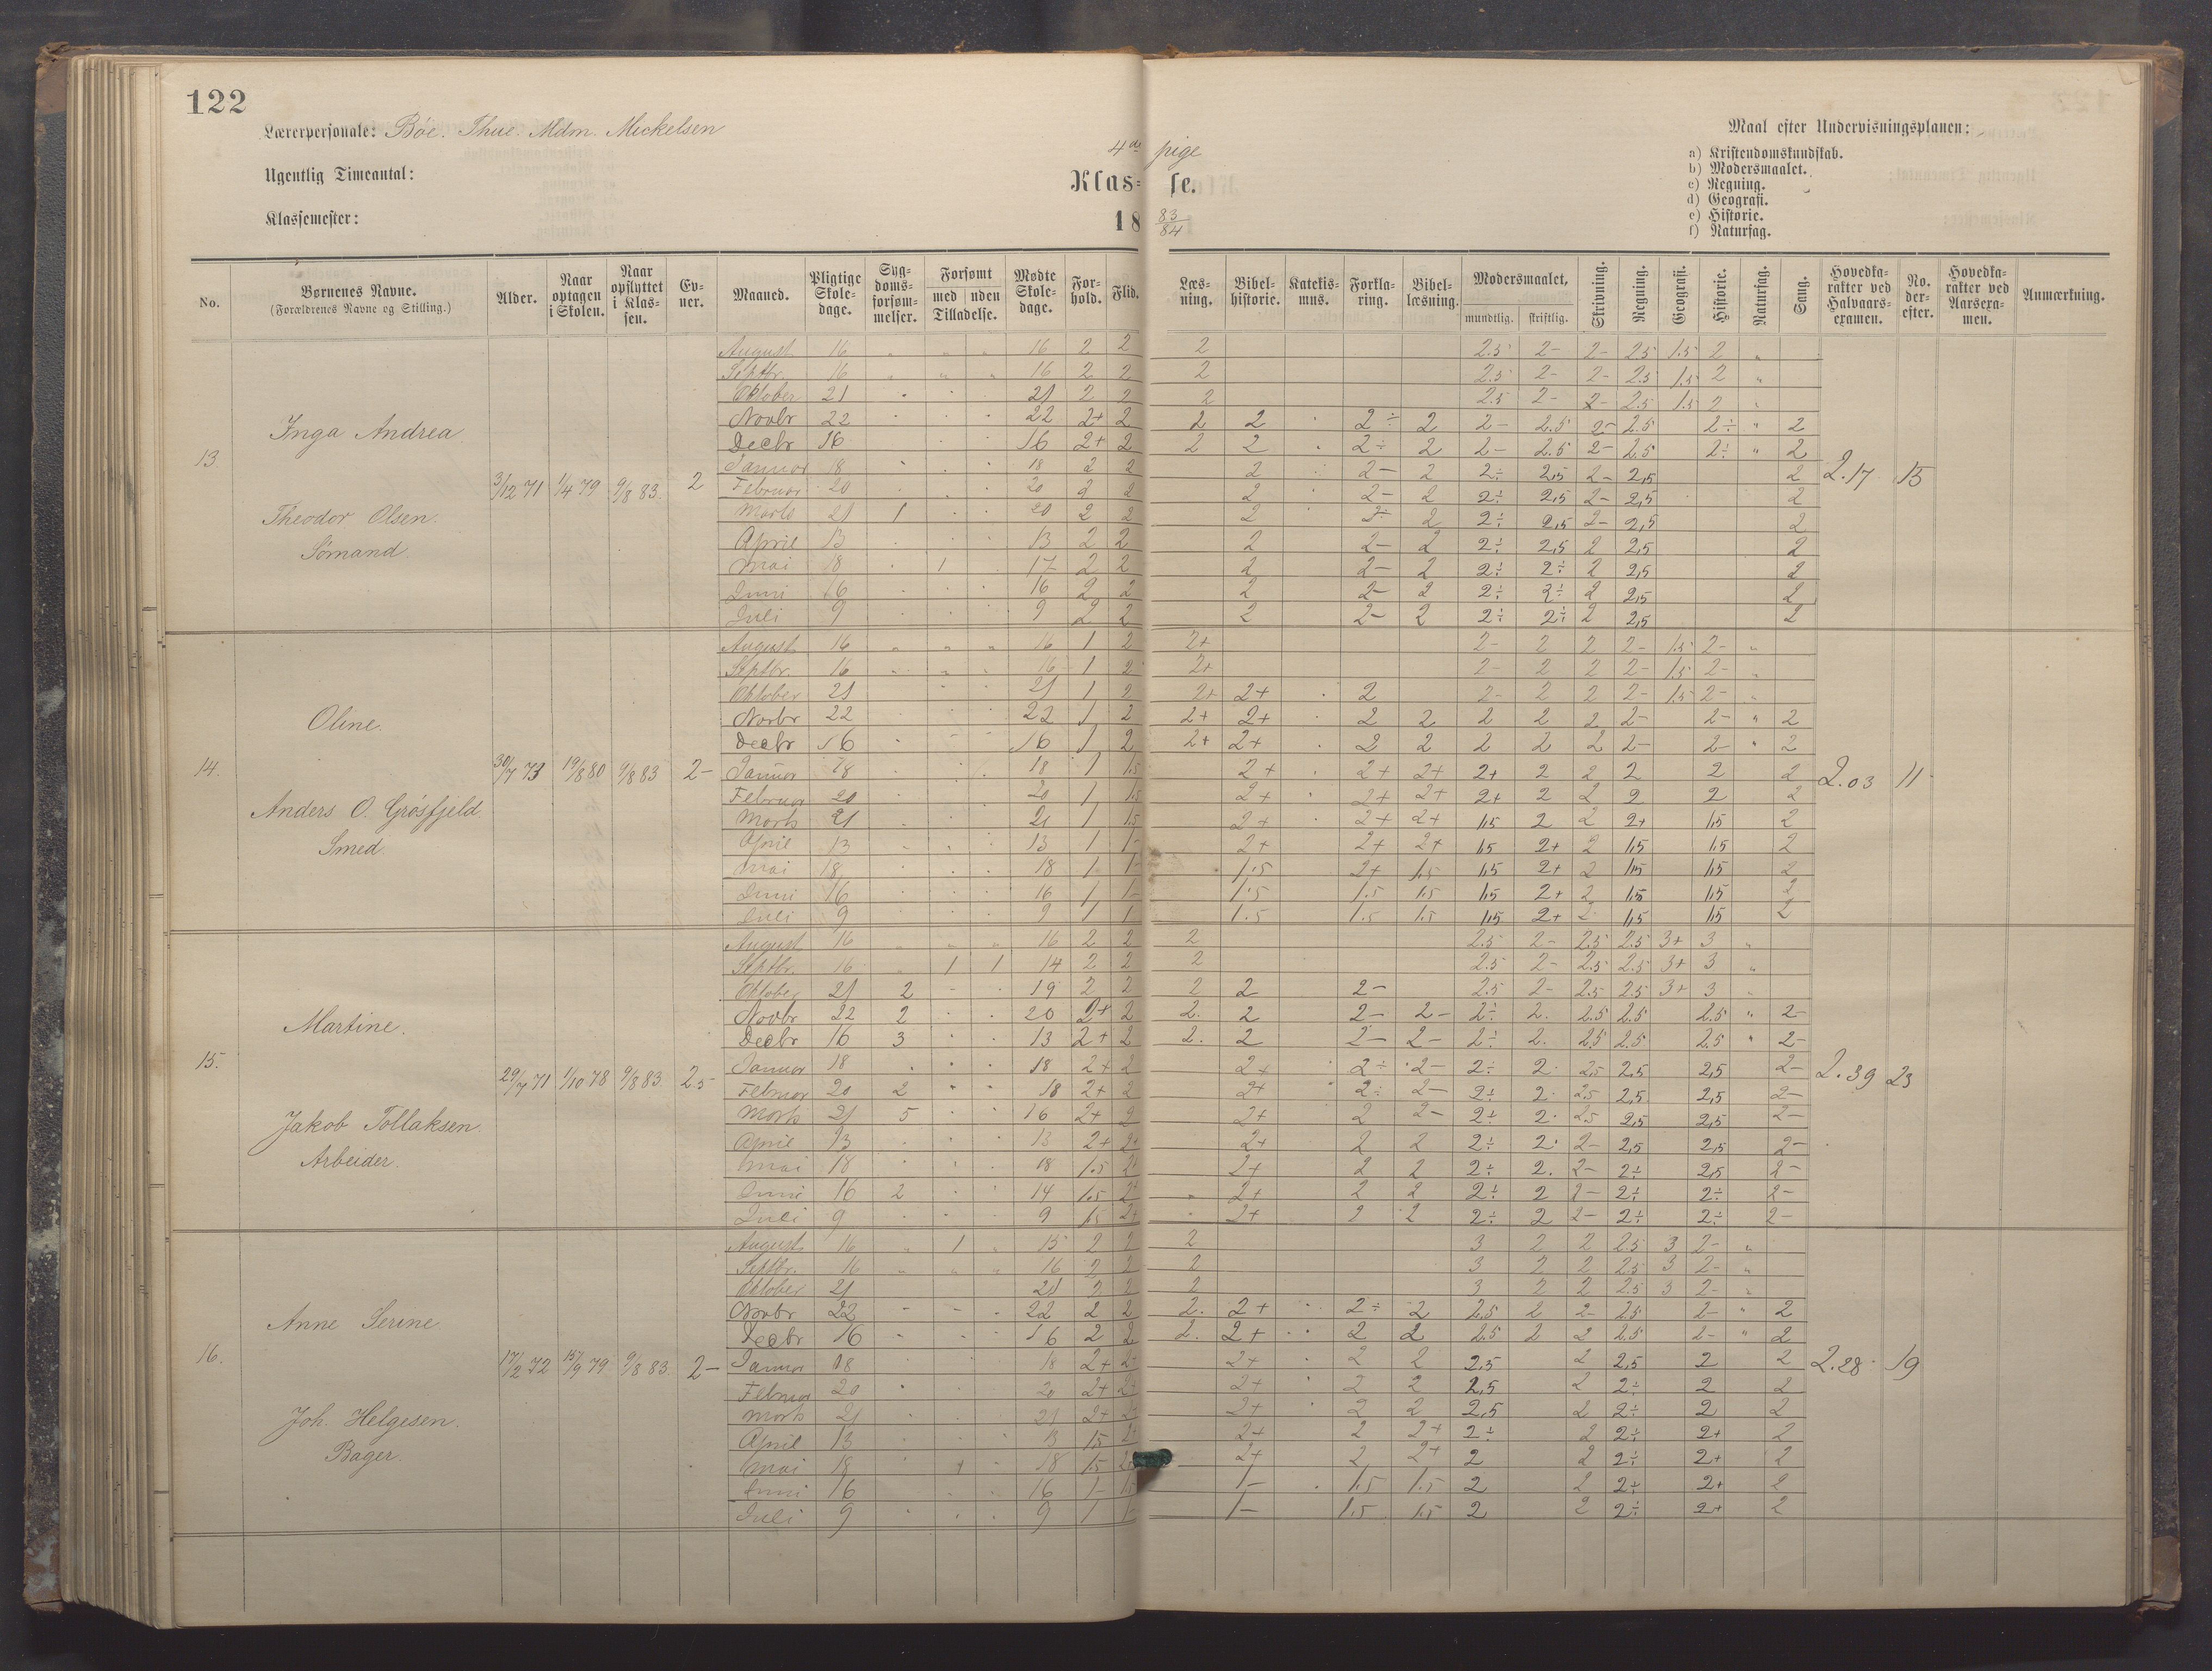 122
Lærerpersonale: Bøe. Thue. Mdm. Mickelsen
Ugentlig Timeantal:
Klassemester:
4de pige
Klas= se.
18 83/84
Maal efter Undervisningsplanen:
a) Kristendomskundskab.
b) Modersmaalet.
c) Regning.
d) Geografi.
e) Historie.
f) Naturfag.
No. | Børnenes Navne. (Forældrenes Navne og Stilling.) | Alder. | Naar optagen i Skolen. | Naar opflyttet i Klassen. | Evner. | Maaned. | Pligtige Skoledage. | Sygdomsforsømmelser. | Forsømt med Tilladelse. | uden Tilladelse. | Mødte Skoledage. | Forhold. | Flid. | Læsning. | Bibelhistorie. | Katekismus. | Forklaring. | Bibellæsning. | Modersmaalet, mundtlig. | skriftlig. | Skrivning. | Regning. | Geografi. | Historie. | Naturfag. | Sang. | Hovedkarakter ved Halvaarsexamen. | No. derefter. | Hovedkarakter ved Aarsexamen. | Anmærkning.
13 Inga Andrea
Theodor Olsen.
Sømand.
3/12 71 1/4 79 9/8 83. 2
2.17 15
August 16 16 2 2 2 2.5 2- 2- 2.5 1.5 2
Septbr. 16 16 2 2 2 2.5 2- 2- 2.5 1.5 2
Oktober 21 21 2 2 2 2.5 2- 2- 2.5 1.5 2
Novbr 22 22 2+ 2 2 2 2÷ 2 2- 2.5 2- 2.5 2÷ 2
Decbr 16 16 2+ 2 2 2 2÷ 2 2- 2.5 2- 2.5 2÷ 2
Januar 18 18 2 2 2 2- 2 2÷ 2,5 2- 2,5 2
Februar 20 20 2 2 2 2- 2 2÷ 2,5 2- 2,5 2
Marts 21 1 20 2 2 2 2÷ 2 2÷ 2,5 2- 2,5 2
April 13 13 2 2 2 2- 2 2÷ 2,5 2 2,5 2
Mai 18 1 17 2 2 2 2- 2 2÷ 2÷ 2 2,5 2
Juni 16 16 2 2 2 2- 2 2÷ 2÷ 2 2,5 2
Juli 9 9 2 2 2 2- 2 2÷ 2÷ 2 2,5 2
14. Oline.
Anders O. Grøsfjeld.
Smed.
30/7 73 19/8 80 9/8 83 2-
2.03 11
August 16 16 1 2 2+ 2- 2 2 2- 1.5 2-
Septbr. 16 16 1 2 2+ 2- 2 2 2- 1.5 2-
Oktober 21 21 1 2 2+ 2+ 2 2- 2 2 2- 1.5 2-
Novbr 22 22 1 2 2+ 2+ 2 2 2 2 2 2- 2- 2
Decbr 16 16 1 2 2+ 2+ 2 2 2 2 2 2- 2- 2
Januar 18 18 1 1.5 2+ 2+ 2+ 2+ 2 2 2 2 2
Februar 20 20 1 1.5 2+ 2+ 2+ 2+ 2 2 2 2 2
Marts 21 21 1 1.5 2+ 2+ 2+ 1,5 2 2 2+ 1,5 2
April 13 13 1 1- 2+ 2+ 2+ 1,5 2+ 2 1,5 1,5 2
Mai 18 18 1 1- 1.5 2+ 1.5 1,5 2+ 2 1,5 1,5 2
Juni 16 16 1 1- 1.5 1.5 1.5 1,5 2+ 2 1,5 1,5 2
Juli 9 9 1 1 1.5 1.5 1.5 1,5 2+ 2 1,5 1,5 2
15. Martine.
Jakob Tollaksen.
Arbeider.
29/7 71 1/10 78 9/8 83 2.5
2.39 23
August 16 16 2 2 2 2.5 2- 2.5 2.5 3+ 3
Septbr. 16 1 1 14 2 2 2 2.5 2- 2.5 2.5 3+ 3
Oktober 21 2 19 2 2 2 2 2- 2.5 2- 2.5 2.5 3+ 3
Novbr 22 2 20 2+ 2 2. 2 2- 2- 2÷ 2. 2.5 2.5 2.5 2-
Decbr 16 3 13 2+ 2 2. 2 2- 2- 2÷ 2. 2.5 2.5 2.5 2-
Januar 18 18 2+ 2 2+ 2÷ 2- 2÷ 2 2,5 2,5 2,5 2-
Februar 20 2 18 2+ 2 2+ 2÷ 2- 2÷ 2 2,5 2,5 2,5 2-
Marts 21 5 16 2+ 2 2+ 2 2- 2÷ 2 2,5 2,5 2,5 2-
April 13 13 2+ 2+ 2+ 2 2 2÷ 2 2- 2,5 2,5 2-
Mai 18 18 1.5 2+ 2+ 2 2 2÷ 2. 2- 2÷ 2,5 2-
Juni 16 2 14 1.5 2+ 2+ 2 2 2÷ 2 2- 2÷ 2÷ 2-
Juli 9 9 1.5 2+ 2+ 2 2 2÷ 2 2- 2÷ 2÷ 2-
16. Anne Serine.
Joh. Helgesen.
Bager.
17/2 72 15/9 79 9/8 83 2-
2.28 19
August 16 1 15 2 2 2 3 2 2 2.5 3 2-
Septbr. 16 16 2 2 2 3 2 2 2.5 3 2-
Oktober 21 21 2 2 2 3 2 2 2.5 3 2-
Novbr 22 22 2 2 2. 2+ 2÷ 2 2.5 2 2- 2.5 2- 2
Decbr 16 16 2 2 2. 2+ 2 2 2.5 2 2 2.5 2- 2
Januar 18 18 2+ 2+ 2 2 2,5 2 2,5 2 2
Februar 20 20 2+ 2+ 2+ 2 2 2,5 2 2÷ 2 2
Marts 21 21 2+ 2+ 2+ 2 2 2,5 2 2÷ 2 2
April 13 13 1.5 2+ 2 2+ 2÷ 2 2÷ 2+ 2
Mai 18 18 1.5 2+ 2 2+ 2 2 2÷ 2+ 2
Juni 16 16 1- 1.5 1- 1.5 1.5 2 2 2÷ 2+ 2
Juli 9 9 1 1- 1- 1.5 1.5 2 2 2÷ 2+ 2